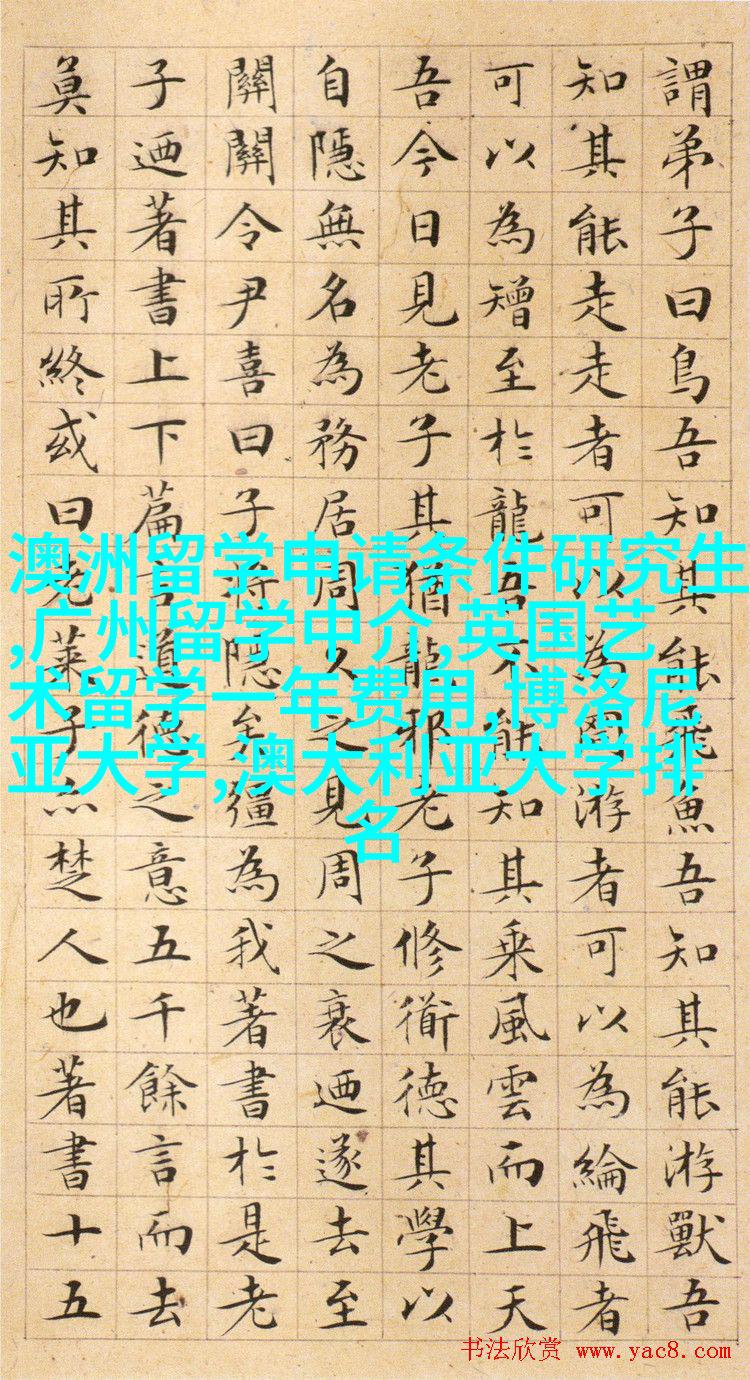 謂弟子曰鳥吾知其能飛魚吾知其能游獸吾
知其能走走者可以為罔游者可以為綸飛者
可以為矰至於龍吾不能知其乘風雲而上天
吾今日見老子其猶龍邪老子修衜德其學以
自隱無名為務居周久之見周之衰迺遂去至
關關令尹喜曰子將隱矣彊為我著書於是老
子迺著書上下篇言道德之意五千餘言而去
莫知其所終或曰老萊子亦楚人也著書十五
澳洲留学申请条件研究生
,广州留学中介,英国艺
术留学一年费用,博洛尼
亚大学,澳大利亚大学排
名
书法欣赏 www.yac8.com